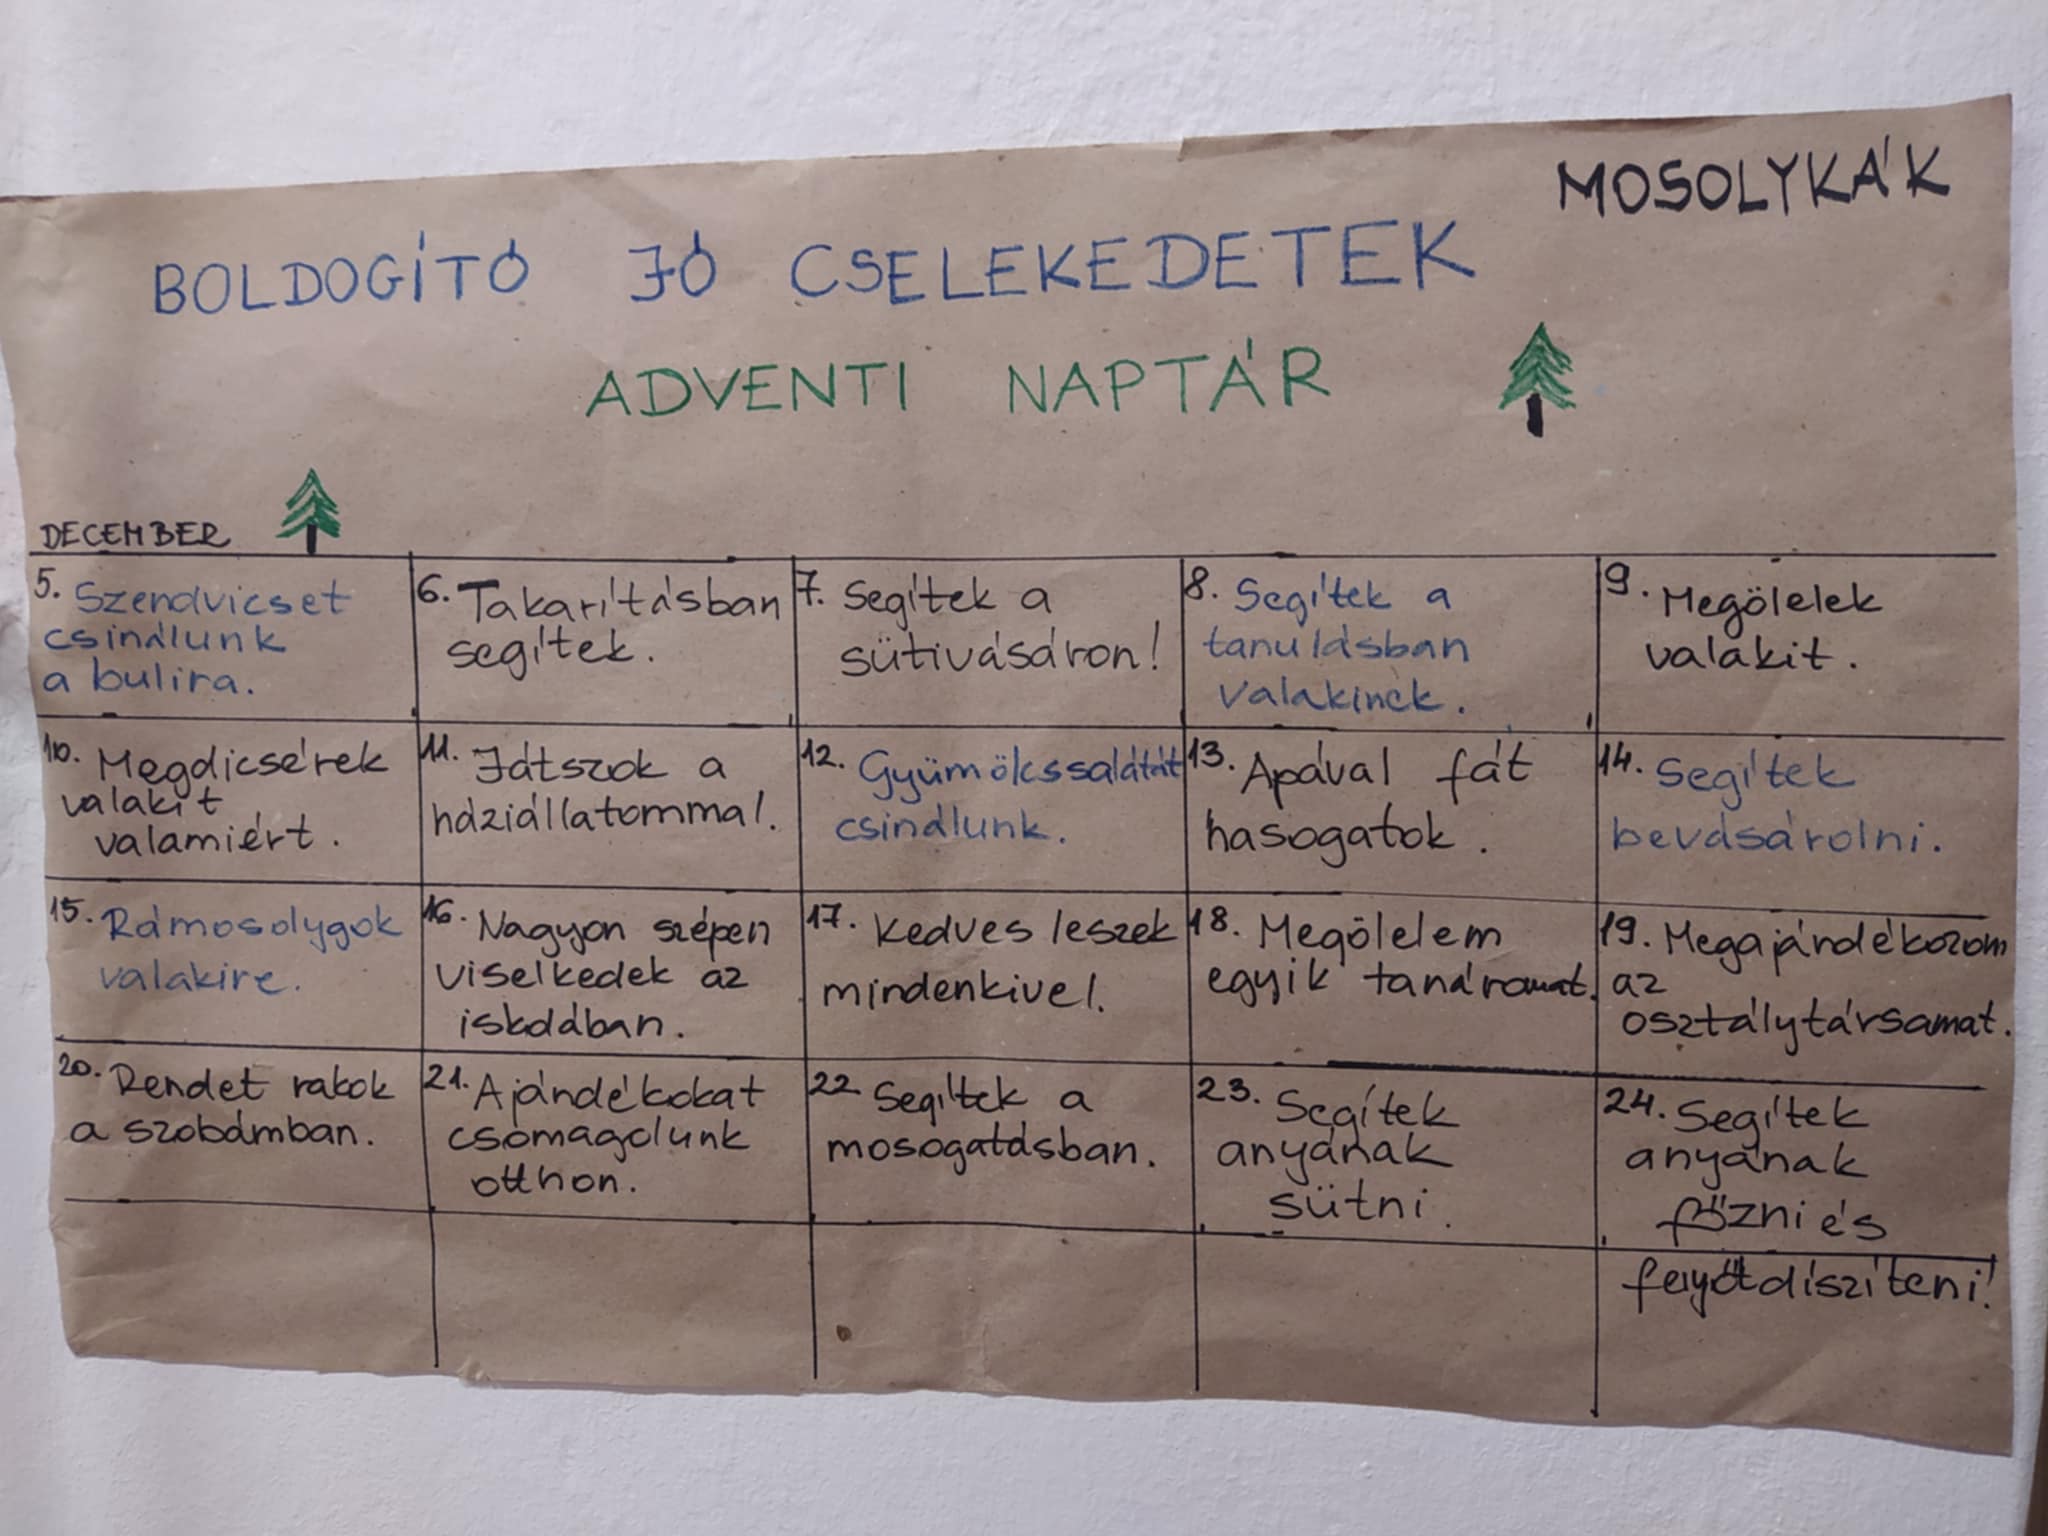 MOSOLYKÁK
BOLDOGÍTÓ JÓ CSELEKEDETEK
ADVENTI NAPTÁR
DECEMBER
5. Szendvicset
csinálunk
a bulira.
6. Takarításban
segítek.
7. Segítek a
sütivásáron!
8. Segítek a
tanulásban
valakinek.
9. Megölelek
valakit.
10. Megdicsérek
valakit
valamiért.
11. Játszok a
háziállatommal.
12. Gyümölcssalátát
csinálunk.
13. Apával fát
hasogatok.
14. Segítek
bevásárolni.
15. Rámosolygok
valakire.
16. Nagyon szépen
viselkedek az
iskolában.
17. Kedves leszek
mindenkivel.
18. Megölelem
egyik tanáromat.
19. Megajándékozom
az
osztálytársamat.
20. Rendet rakok
a szobámban.
21. Ajándékokat
csomagolunk
otthon.
22 Segítek a
mosogatásban.
23. Segítek
anyának
sütni.
24. Segítek
anyának
főzni és
fenyőt díszíteni!